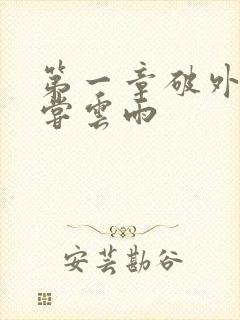 第一章破外
嘗雲雨
安芸勘谷